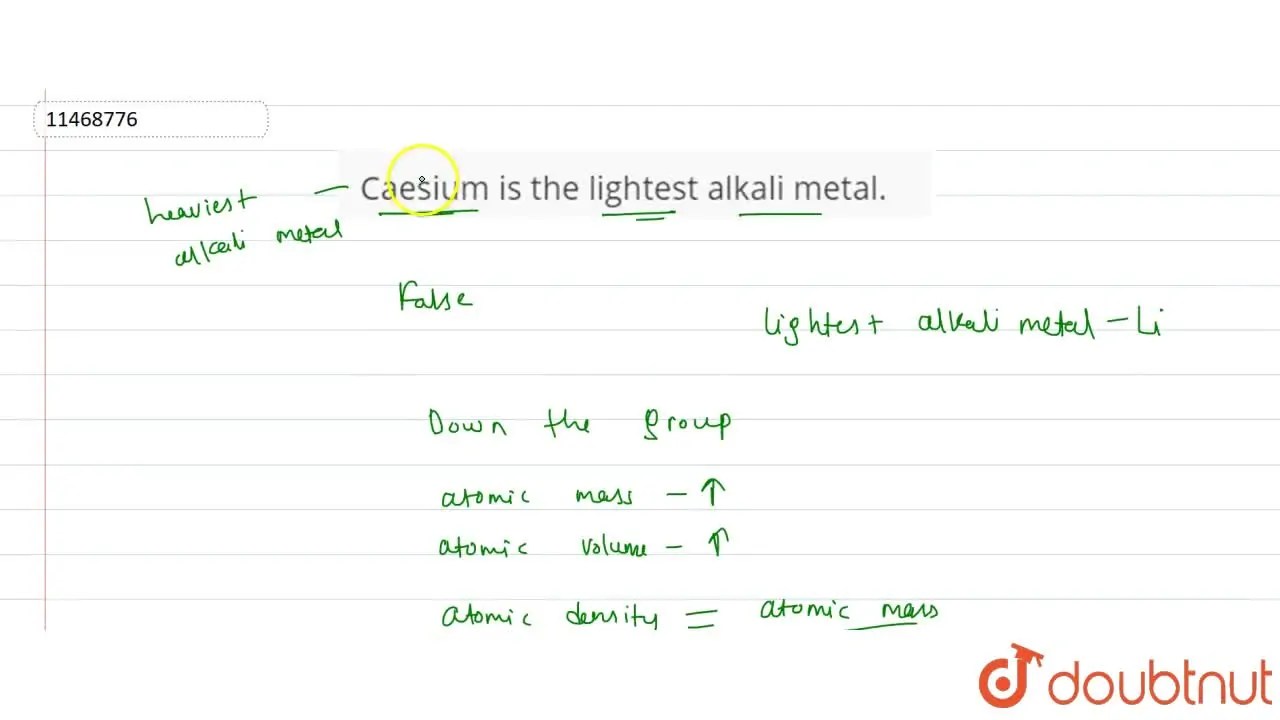 11468776
Caesium is the lightest alkali metal.
heaviest
alkali metal
False
lightest alkali metal - Li
Down the group
atomic mass - ↑
atomic volume - ↑
atomic density = atomic mass
doubtnut